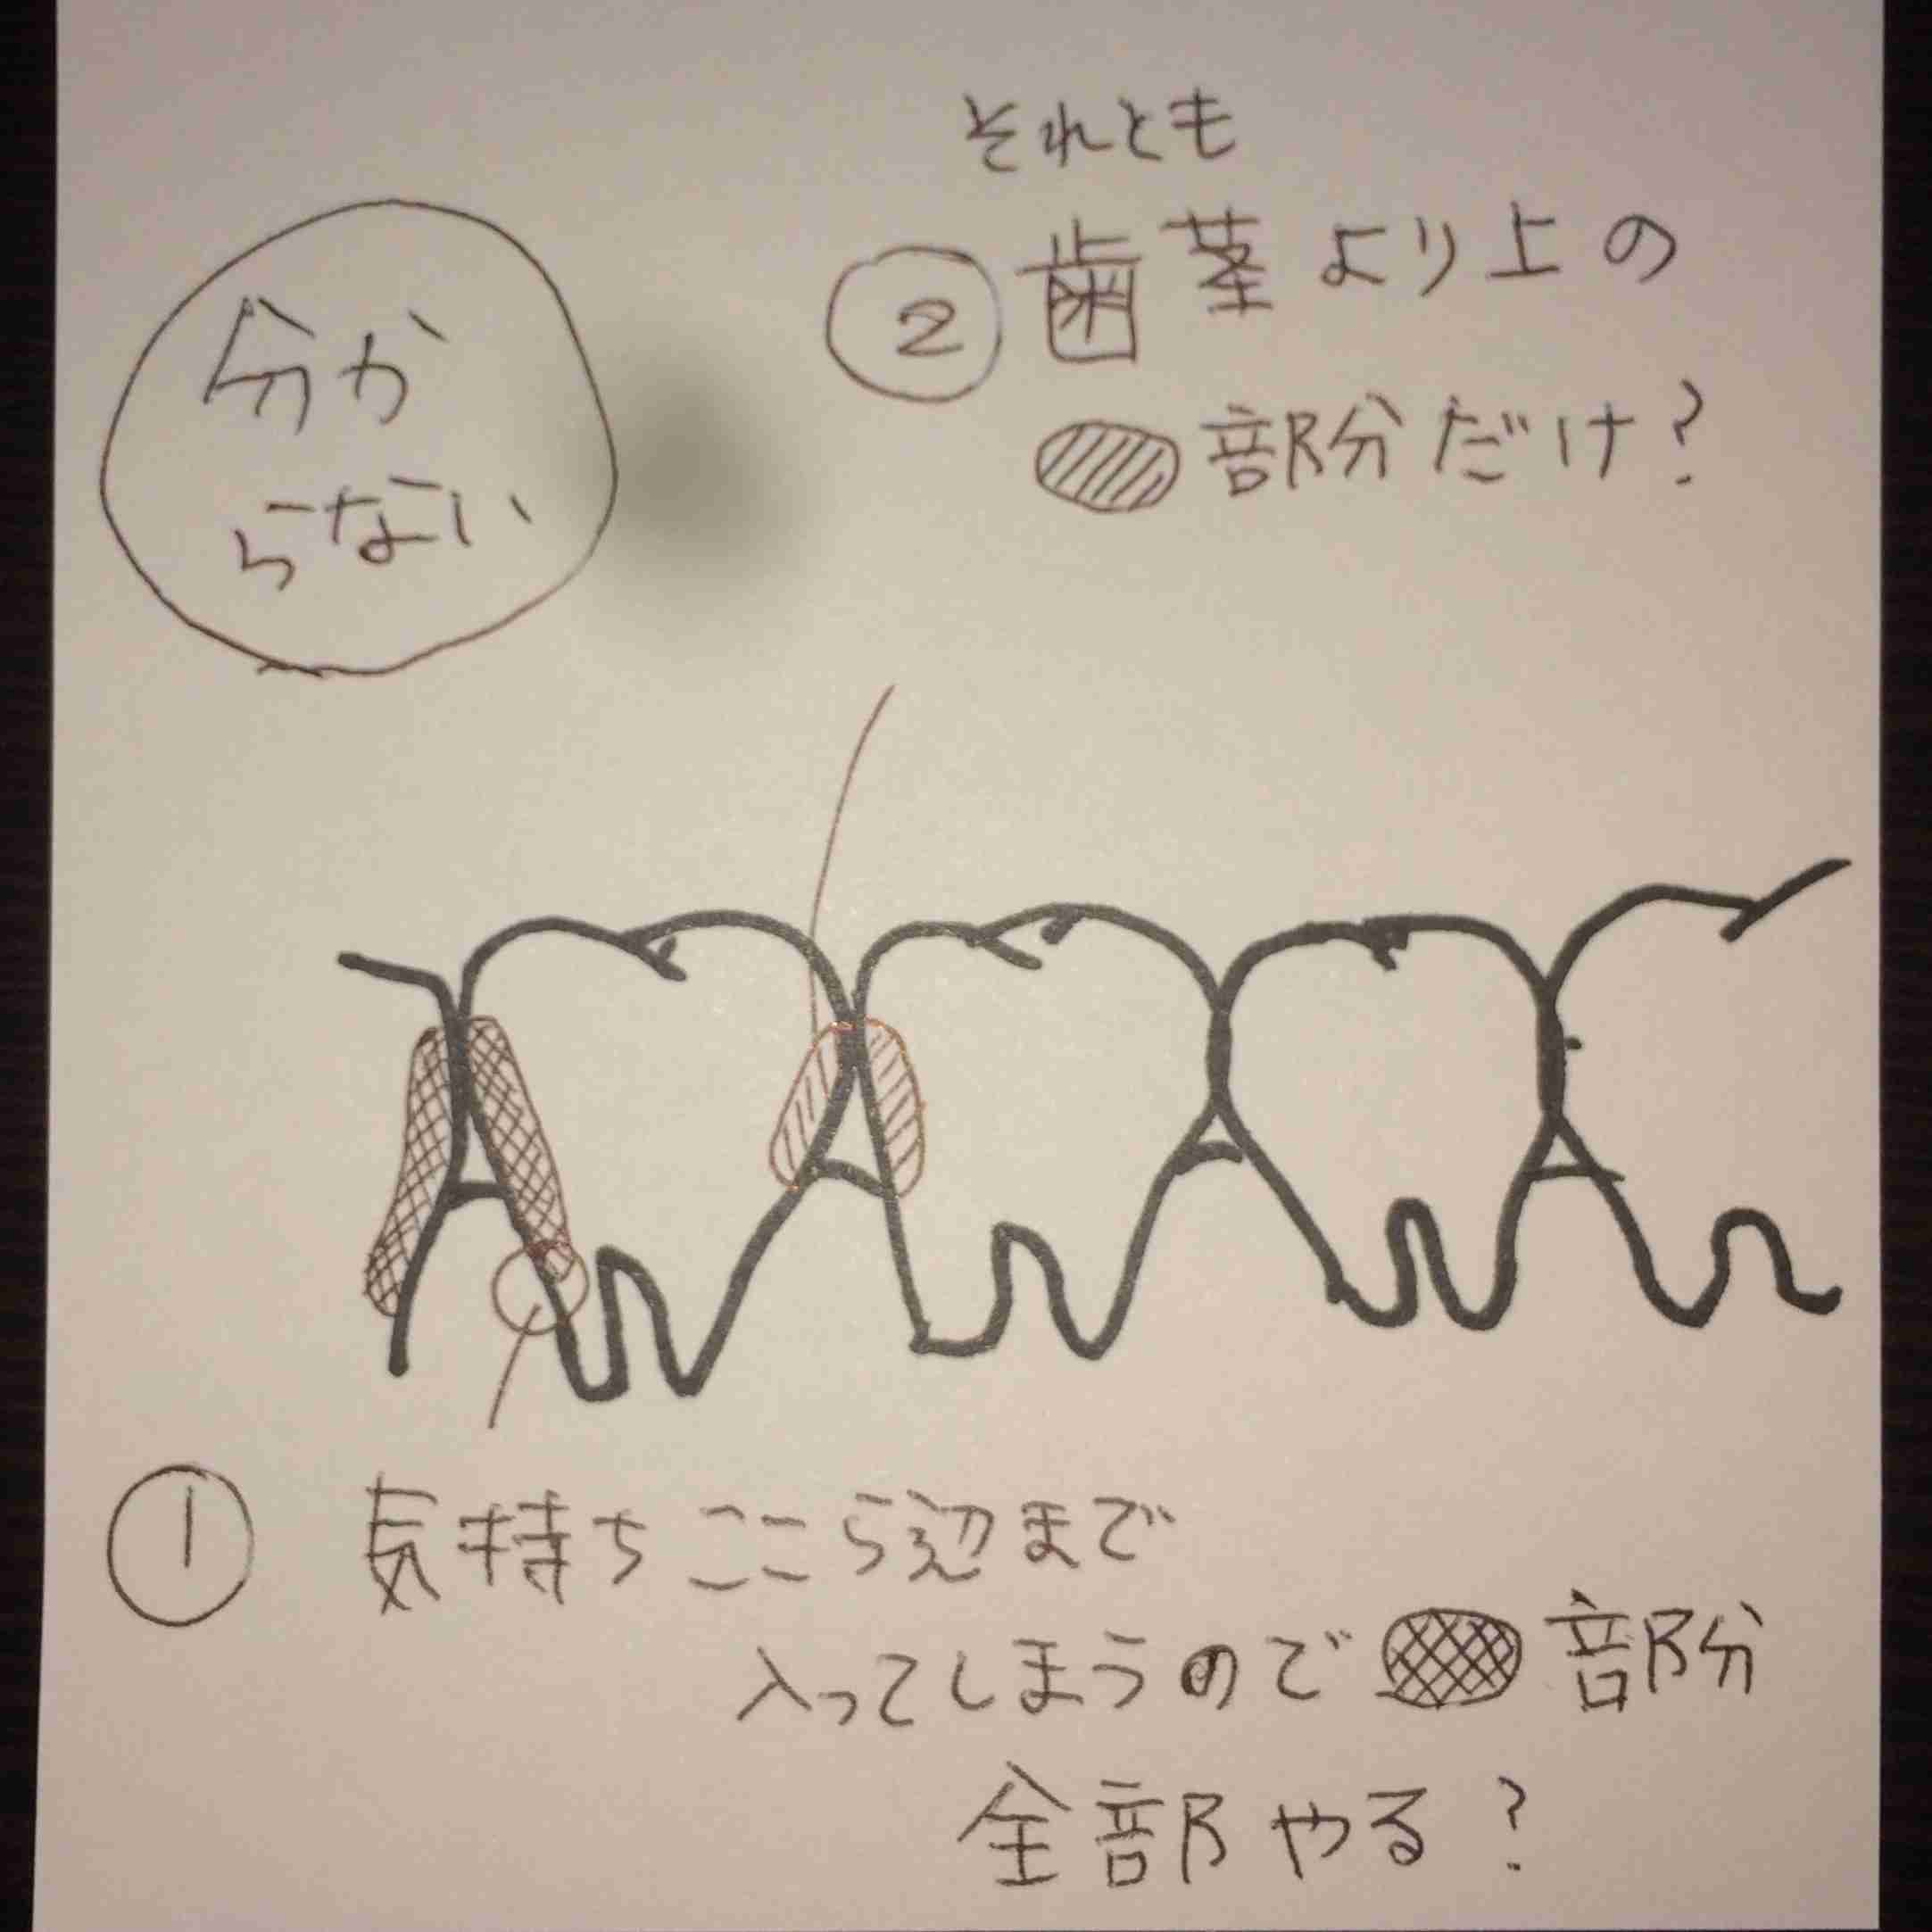 それとも
② 歯茎より上の
部分だけ?
分か
らない
① 気持ちここら辺まで
入ってしまうので 部分
全部やる?